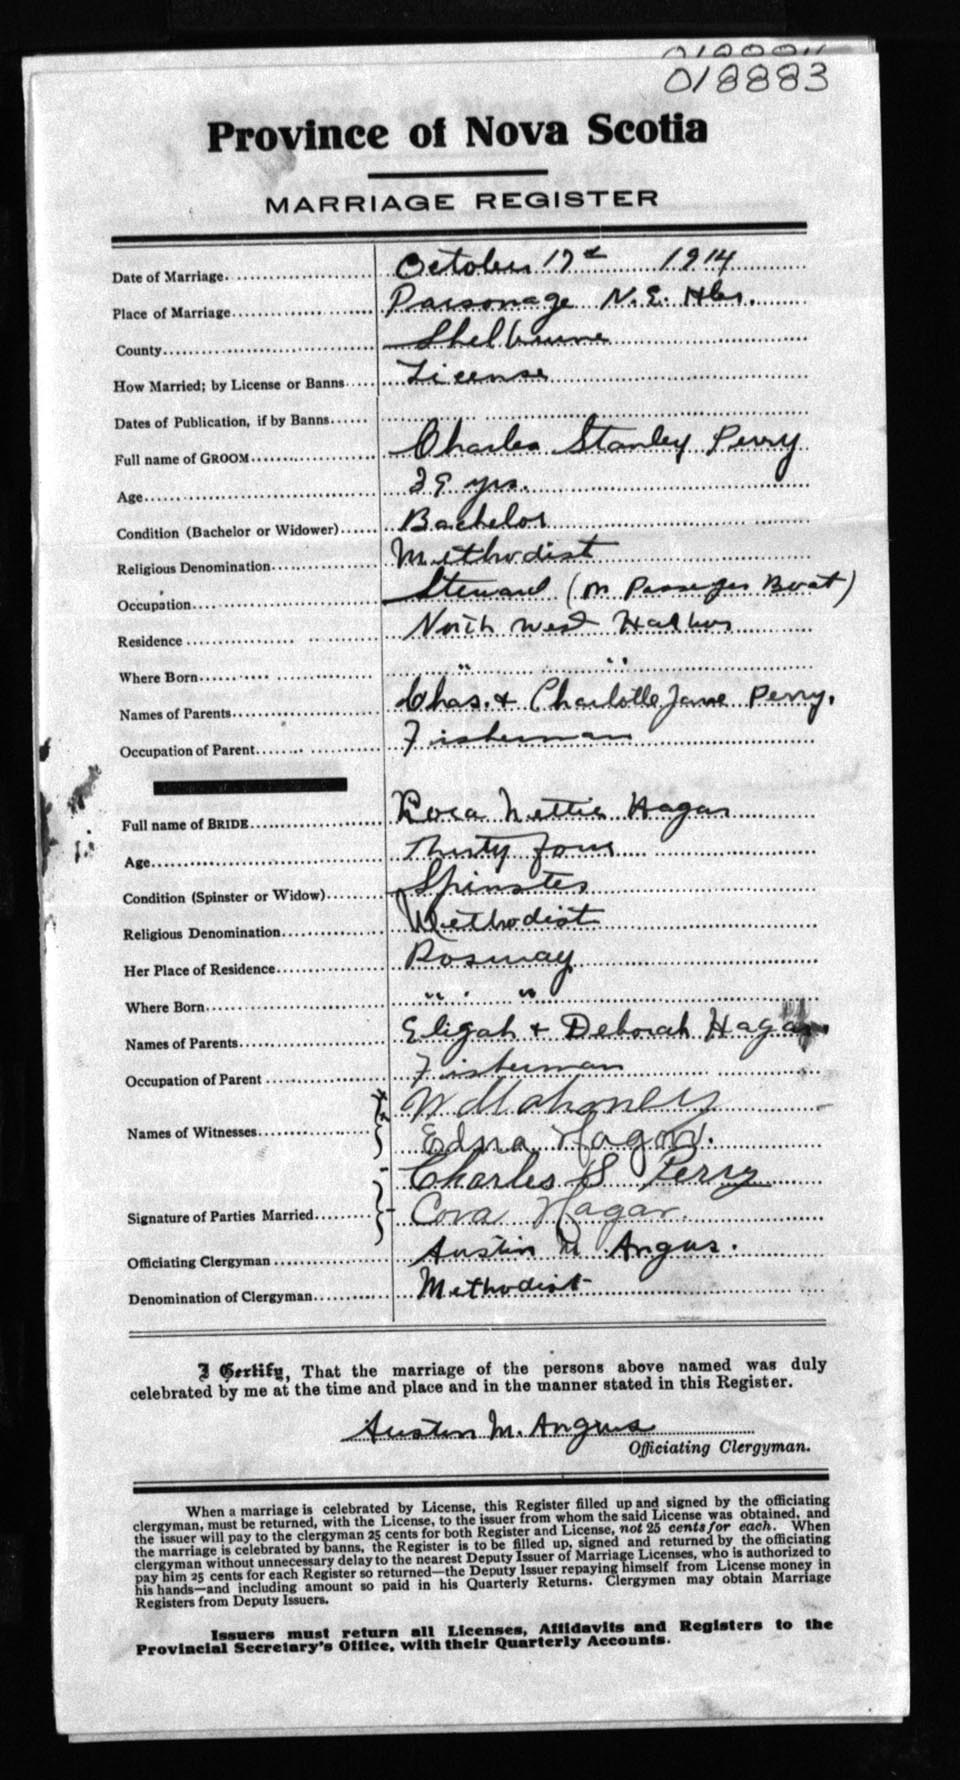 018883
Province of Nova Scotia
MARRIAGE REGISTER
Date of Marriage October 17th 1914
Place of Marriage Parsonage N.E. Hbr.
County Shelburne
How Married; by License or Banns License
Dates of Publication, if by Banns
Full name of GROOM Charles Stanley Perry
Age 29 yrs.
Condition (Bachelor or Widower) Bachelor
Religious Denomination Methodist
Occupation Steward (on Passenger Boat)
Residence North West Harbour
Where Born " "
Names of Parents Chas. & Charlotte Jane Perry.
Occupation of Parent Fisherman
Full name of BRIDE Cora Nettie Hagar
Age Thirty four
Condition (Spinster or Widow) Spinster
Religious Denomination Methodist
Her Place of Residence Rosway
Where Born " "
Names of Parents Eligah & Deborah Hagar
Occupation of Parent Fisherman
W Mahoney
Names of Witnesses
Edna Hagar.
Charles S Perry
Signature of Parties Married Cora Hagar.
Officiating Clergyman Austin M Angus.
Denomination of Clergyman Methodist
I Certify, That the marriage of the persons above named was duly
celebrated by me at the time and place and in the manner stated in this Register.
Austin M. Angus
Officiating Clergyman.
When a marriage is celebrated by License, this Register filled up and signed by the officiating
clergyman, must be returned, with the License, to the issuer from whom the said License was obtained, and
the issuer will pay to the clergyman 25 cents for both Register and License, not 25 cents for each. When
the marriage is celebrated by banns, the Register is to be filled up, signed and returned by the officiating
clergyman without unnecessary delay to the nearest Deputy Issuer of Marriage Licenses, who is authorized to
pay him 25 cents for each Register so returned—the Deputy Issuer repaying himself from License money in
his hands—and including amount so paid in his Quarterly Returns. Clergymen may obtain Marriage
Registers from Deputy Issuers.
Issuers must return all Licenses, Affidavits and Registers to the
Provincial Secretary's Office, with their Quarterly Accounts.